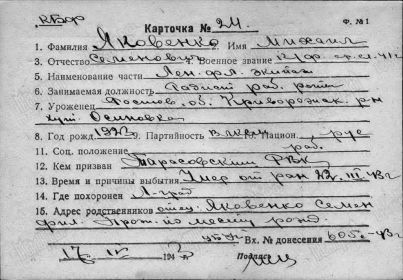 КБФ Ф. №1
Карточка № 24.
1. Фамилия Яковенко Имя Михаил
3. Отчество Семенович Военное звание к/ф
5. Наименование части Лен. фл. экипаж
6. Занимаемая должность Радист рад. роты
7. Уроженец Ростов. об. Криворожск. р-н
хут. Осиновка
8. Год рожд. 1922 9. Партийность 10. Национ. рус
11. Соц. положение раб.
12. Кем призван Тарасовским РВК
13. Время и причины выбытия Умер от ран 22. III 43 г
14. Где похоронен Л-град
15. Адрес родственников отец: Яковенко Семен
Фил. Прож. по месту рожд.
Вх. № донесения 605с-43г
17. IV 1943 г Подпись